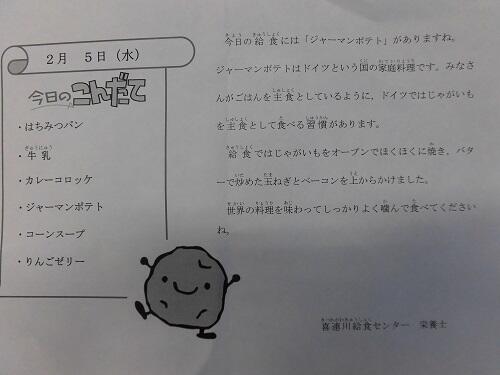 2月 5日(水)
今日のこんだて
・はちみつパン
・牛乳
・カレーコロッケ
・ジャーマンポテト
・コーンスープ
・りんごゼリー
今日の給食には「ジャーマンポテト」がありますね。
ジャーマンポテトはドイツという国の家庭料理です。みなさ
んがごはんを主食としているように、ドイツではじゃがいも
を主食として食べる習慣があります。
給食ではじゃがいもをオーブンでほくほくに焼き、バタ
ーで炒めた玉ねぎとベーコンを上からかけました。
世界の料理を味わってしっかりよく噛んで食べてください
ね。
喜連川給食センター 栄養士